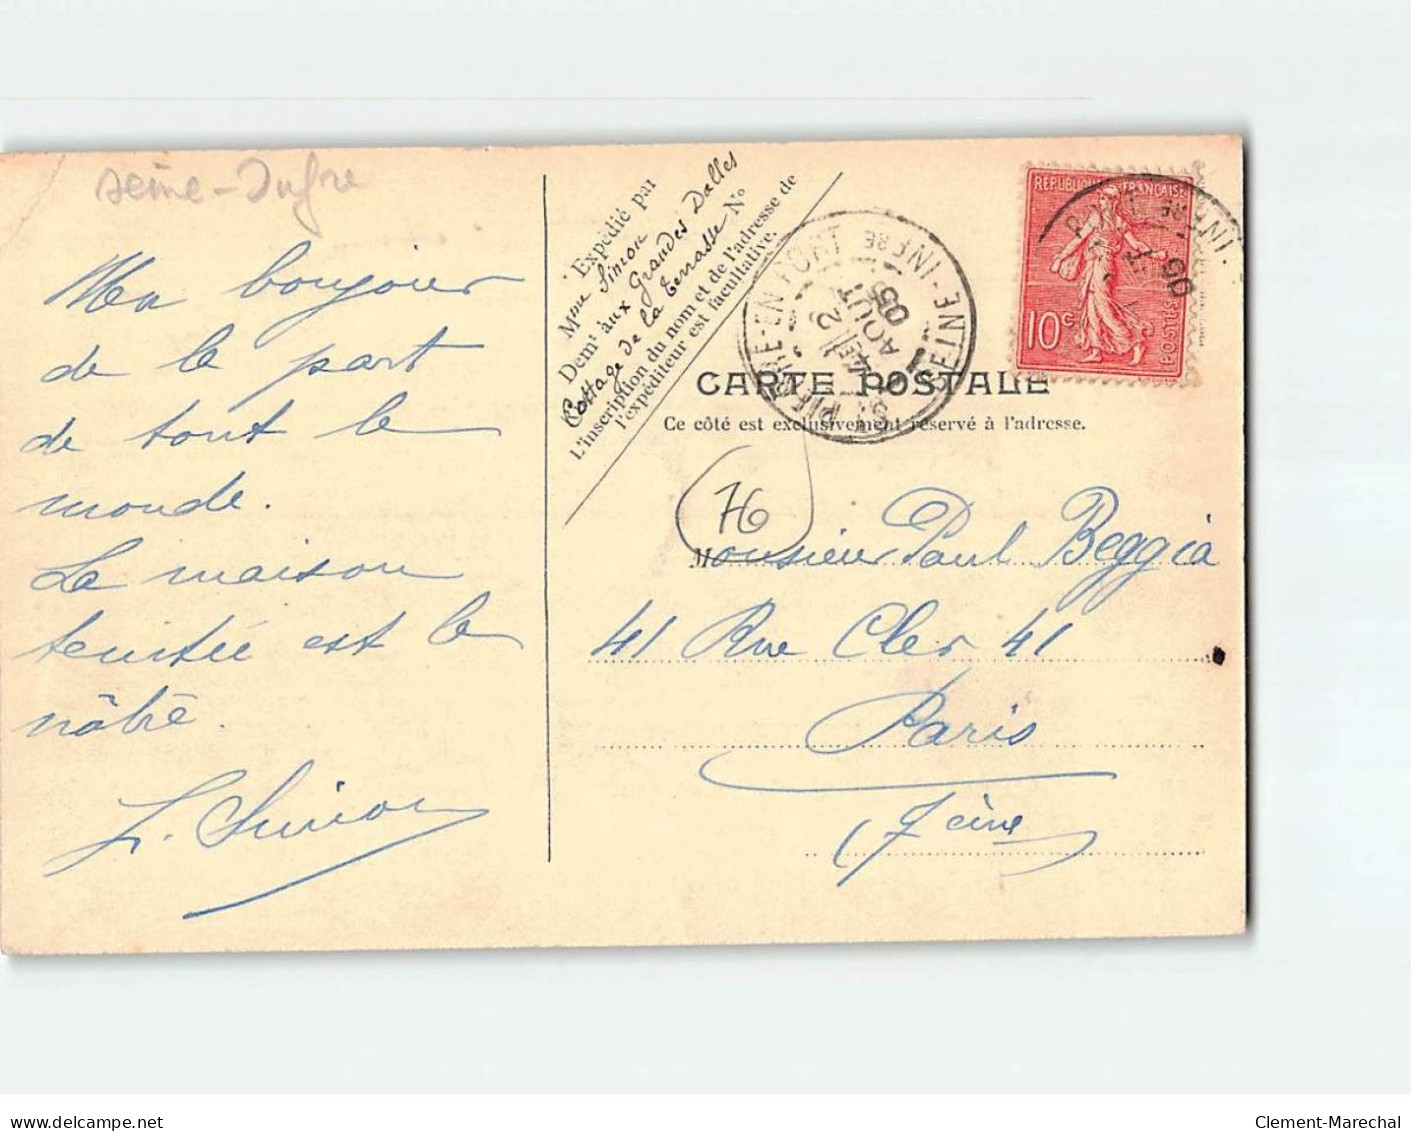 seine-Infre
Un bonjour
de la part
de tout le
monde.
La maison
teintée est la
nôtre.
L. Simon
Expédié par
Mme Simon
Demt aux Grandes Dalles
Cottage de la Terrasse No
L'inscription du nom et de l'adresse de
l'expéditeur est facultative.
ST PIERRE-EN-PORT
SEINE-INFRE
12
AOUT
05
REPUBLIQUE FRANÇAISE
10c
POSTES
CARTE POSTALE
Ce côté est exclusivement réservé à l'adresse.
76
Monsieur Paul Beggia
41 Rue Cler 41
Paris
7eme
delcampe.net
Clement-Marechal